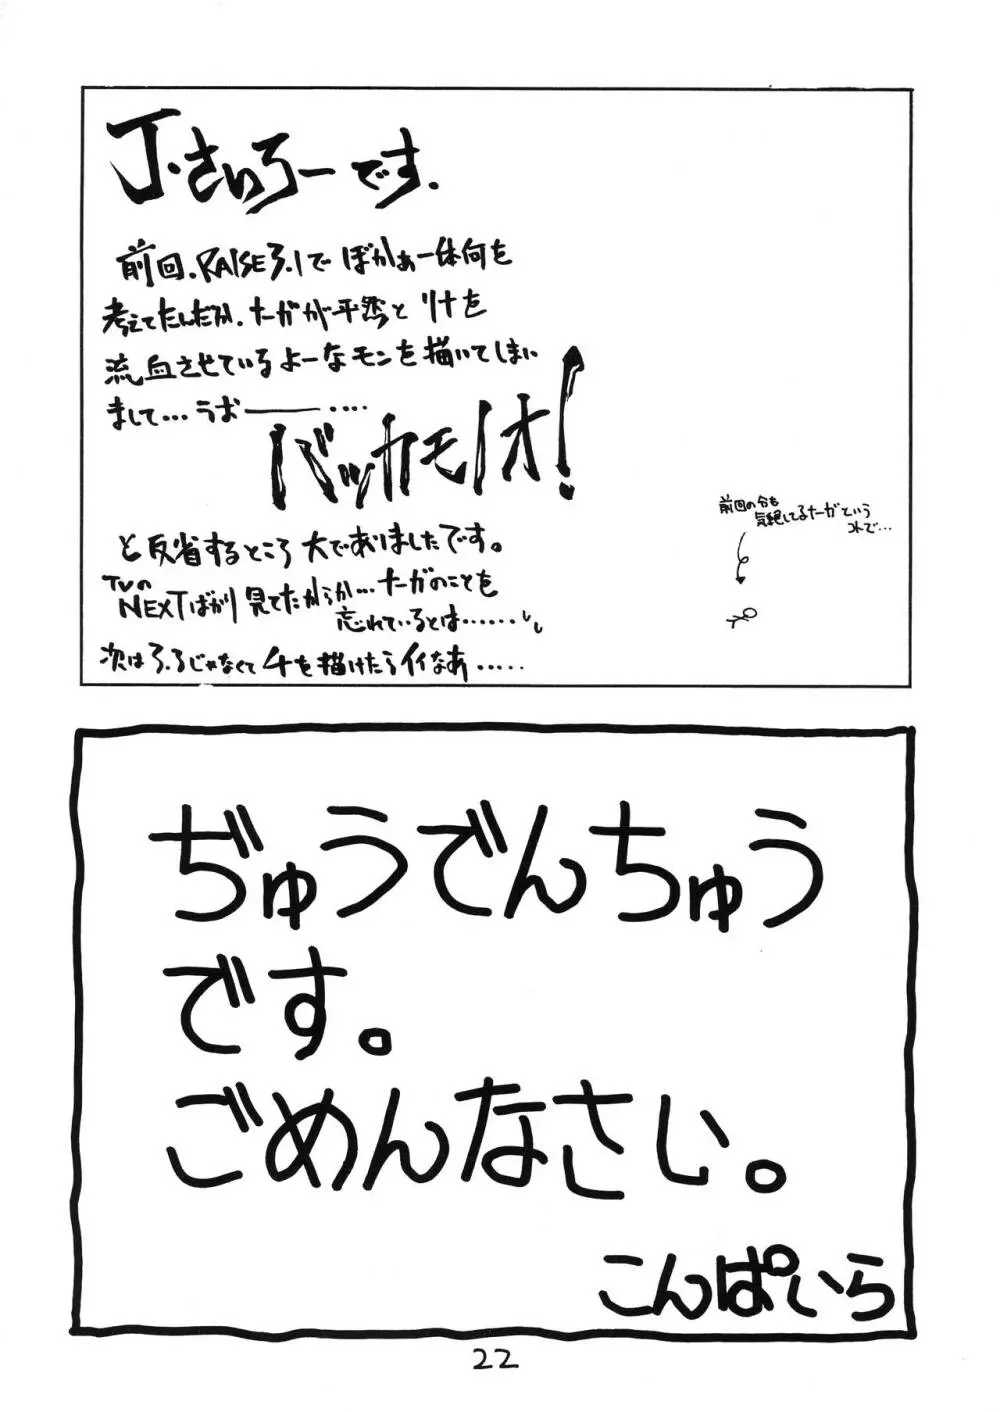 J・さいろーです.
前回.RAISE3.1でぼかぁ一体何を
考えてたんだか.たーがが平然とリナを
流血させているよーなモンを描いてしまい
まして…うお―――‥‥
バッカモノオ!
と反省するところ大でありましたです。
TVの
NEXTばかり見てたからか…たーがのことを
忘れているとは……
次は3.3じゃなくて4を描けたらイイなあ……
前回の分も
気絶してるたーがという
コトで…
ぢゅうでんちゅう
です。
ごめんなさい。
こんぱいら
22